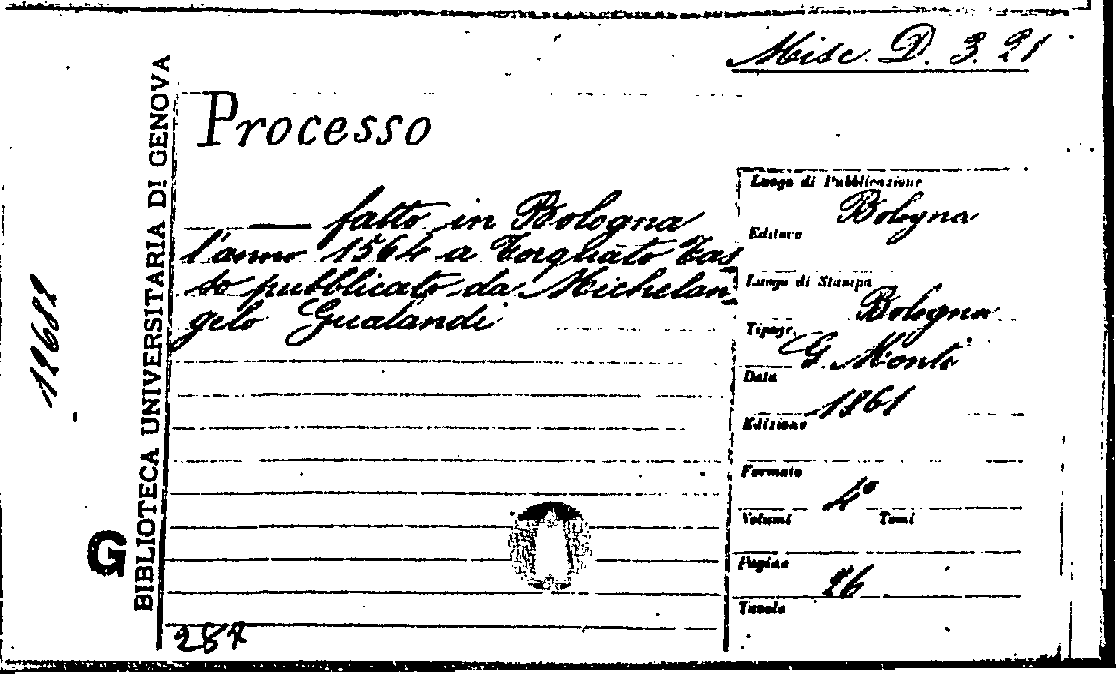 Misc. D. 3. 21
Processo
fatto in Bologna
l'anno 1564 a Torquato Tas
so pubblicato da Michelan
gelo Gualandi
Luogo di Pubblicazione
Bologna
Editore
Luogo di Stampa
Bologna
Tipogr.
G. Monti
Data
1861
Edizione
Formato
4°
Volumi Tomi
Pagine
26
Tavole
BIBLIOTECA UNIVERSITARIA DI GENOVA
G